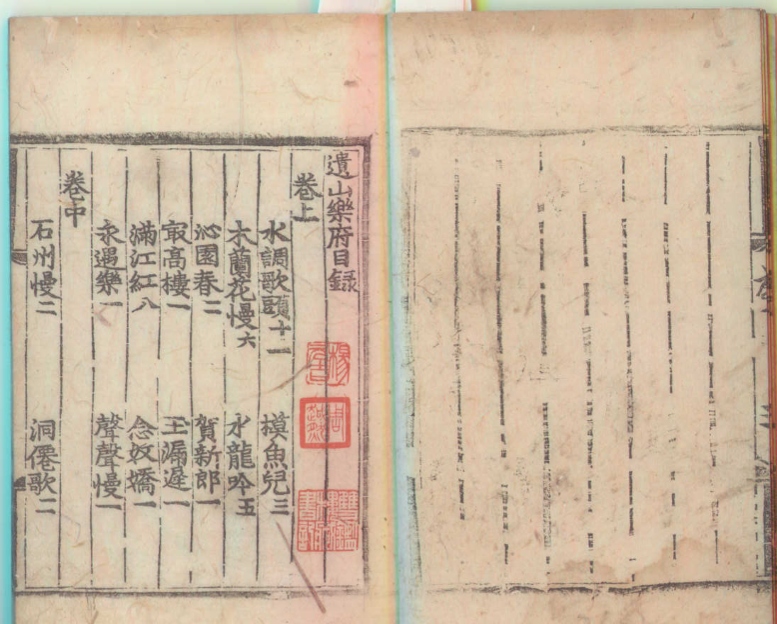 遺山樂府目錄
卷上
水調歌頭十一 摸魚兒三
木蘭花慢六 水龍吟五
沁園春二 賀新郎一
㝡高樓一 玉漏遲一
滿江紅八 念奴嬌一
永遇樂一 聲聲慢一
卷中
石州慢二 洞僊歌二